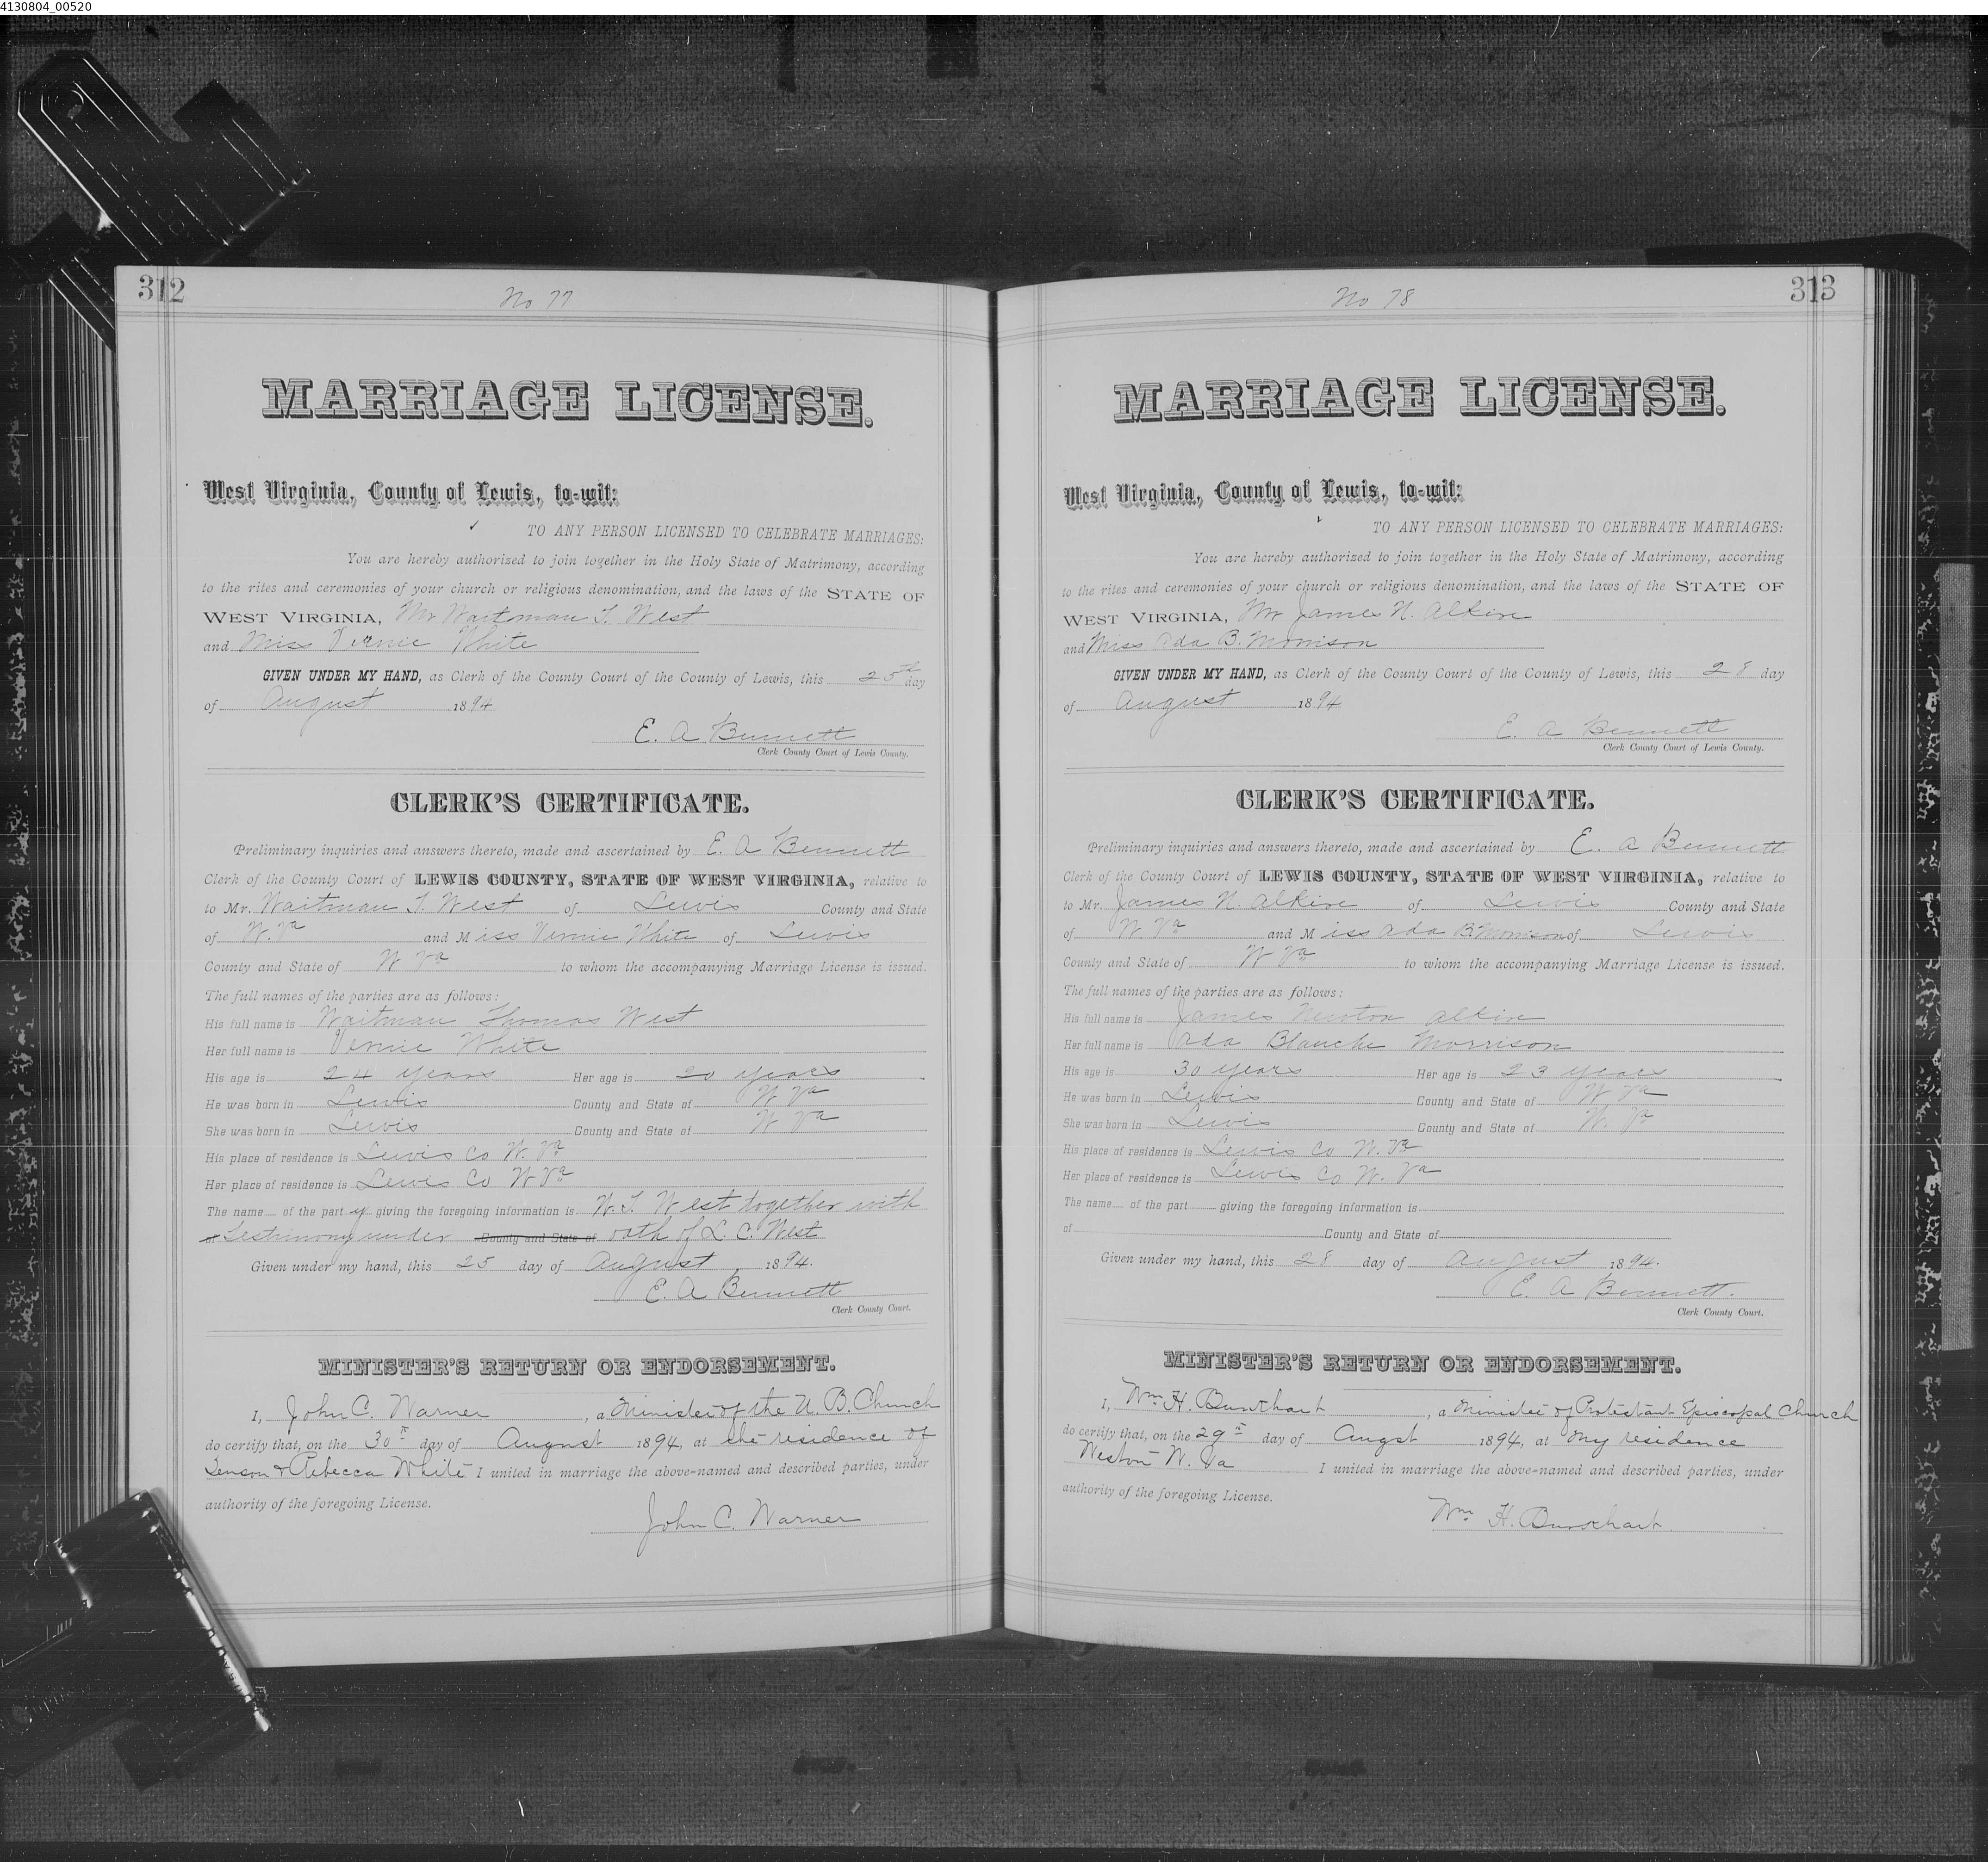 4130804_00520
312
No 77
MARRIAGE LICENSE.
West Virginia, County of Lewis, to-wit:
TO ANY PERSON LICENSED TO CELEBRATE MARRIAGES:
You are hereby authorized to join together in the Holy State of Matrimony, according
to the rites and ceremonies of your church or religious denomination, and the laws of the STATE OF
WEST VIRGINIA, Mr Waitman T. West
and Miss Vernie White
GIVEN UNDER MY HAND, as Clerk of the County Court of the County of Lewis, this 25th day
of August 1894
E. A Bennett
Clerk County Court of Lewis County.
CLERK'S CERTIFICATE.
Preliminary inquiries and answers thereto, made and ascertained by E. A Bennett
Clerk of the County Court of LEWIS COUNTY, STATE OF WEST VIRGINIA, relative to
to Mr. Waitman T. West of Lewis County and State
of W. Va and Miss Vernie White of Lewis
County and State of W Va to whom the accompanying Marriage License is issued.
The full names of the parties are as follows:
His full name is Waitman Thomas West
Her full name is Vernie White
His age is 24 years Her age is 20 years
He was born in Lewis County and State of W Va
She was born in Lewis County and State of W Va
His place of residence is Lewis Co W. Va
Her place of residence is Lewis Co W Va
The name of the party giving the foregoing information is W. T. West together with
of Testimony under County and State of oath of L. C. West
Given under my hand, this 25 day of August, 1894.
E. A Bennett
Clerk County Court.
MINISTER'S RETURN OR ENDORSEMENT.
I, John C. Warner, a Minister of the U. B. Church
do certify that, on the 30th day of August 1894, at the residence of
& Rebecca White I united in marriage the above-named and described parties, under
authority of the foregoing License.
John C. Warner
313
No 78
MARRIAGE LICENSE.
West Virginia, County of Lewis, to-wit:
TO ANY PERSON LICENSED TO CELEBRATE MARRIAGES:
You are hereby authorized to join together in the Holy State of Matrimony, according
to the rites and ceremonies of your church or religious denomination, and the laws of the STATE OF
WEST VIRGINIA, Mr James N. Alkire
and Miss Ada B. Morrison
GIVEN UNDER MY HAND, as Clerk of the County Court of the County of Lewis, this 28 day
of August 1894
E. A Bennett
Clerk County Court of Lewis County.
CLERK'S CERTIFICATE.
Preliminary inquiries and answers thereto, made and ascertained by E. A Bennett
Clerk of the County Court of LEWIS COUNTY, STATE OF WEST VIRGINIA, relative to
to Mr. James N. Alkire of Lewis County and State
of W. Va and Miss Ada B. Morrison of Lewis
County and State of W Va to whom the accompanying Marriage License is issued.
The full names of the parties are as follows:
His full name is James Newton Alkire
Her full name is Ada Blanche Morrison
His age is 30 years Her age is 23 years
He was born in Lewis County and State of W Va
She was born in Lewis County and State of W. Va
His place of residence is Lewis Co W. Va
Her place of residence is Lewis Co W. Va
The name of the part giving the foregoing information is
of County and State of
Given under my hand, this 28 day of August 1894.
E. A Bennett.
Clerk County Court.
MINISTER'S RETURN OR ENDORSEMENT.
I, Wm H. Burkhart, a Minister of Protestant Episcopal Church
do certify that, on the 29th day of Augst 1894, at my residence
Weston W. Va I united in marriage the above-named and described parties, under
authority of the foregoing License.
Wm H. Burkhart